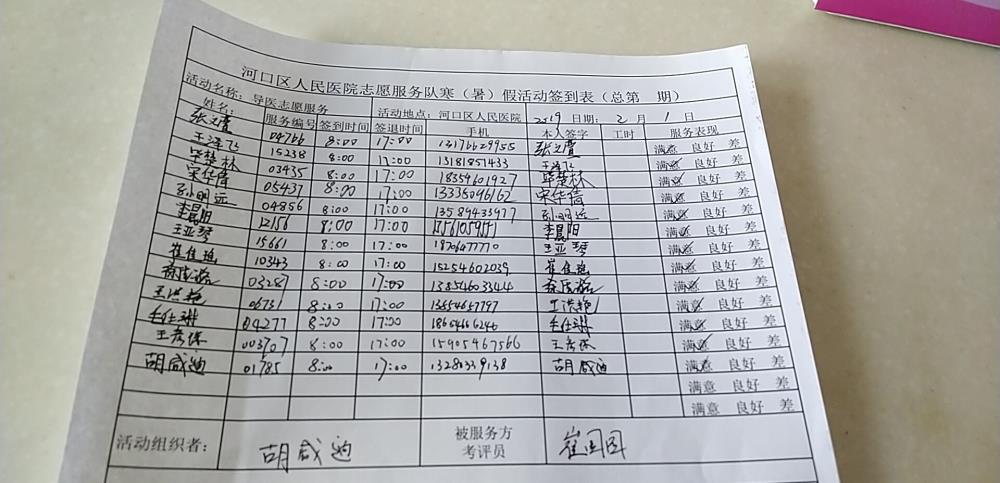 河口区人民医院志愿服务队寒（暑）假活动签到表（总第 期）
活动名称：导医志愿服务 活动地点：河口区人民医院 2019 日期：2 月 1 日
姓名： 服务编号 签到时间 签退时间 手机 本人签字 工时 服务表现
张文萱 04766 8:00 17:00 13176629955 张文萱 满意 良好 差
15238 8:00 17:00 13181851433 满意 良好 差
毕楚林 03435 8:00 17:00 18354601927 毕楚林 满意 良好 差
宋华倩 05437 8:00 17:00 13335096162 宋华倩 满意 良好 差
孙明远 04856 8:00 17:00 13589433977 孙明远 满意 良好 差
李晨阳 12156 8:00 17:00 李晨阳 满意 良好 差
王亚琴 15661 8:00 17:00 王亚琴 满意 良好 差
10343 8:00 17:00 15254602039 满意 良好 差
03287 8:00 17:00 满意 良好 差
王洪艳 06731 8:00 17:00 王洪艳 满意 良好 差
毛仕琳 04277 8:00 17:00 毛仕琳 满意 良好 差
王秀保 8:00 17:00 15905467566 王秀保 满意 良好 差
胡咸迪 01785 8:00 17:00 13280339138 胡咸迪 满意 良好 差
满意 良好 差
满意 良好 差
活动组织者： 胡咸迪 被服务方考评员